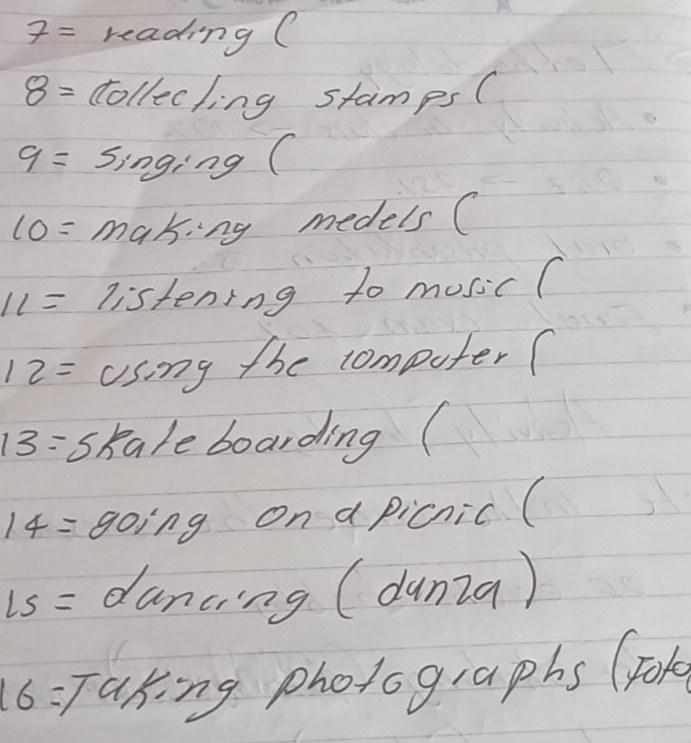 7= reading (
8= Collecting stamps (
9= Singing (
10= making medels (
11= listening to music (
12= using the computer (
13=skate boarding (
14=going on a picnic (
15= dancing (danza)
16=Taking photographs (Foto